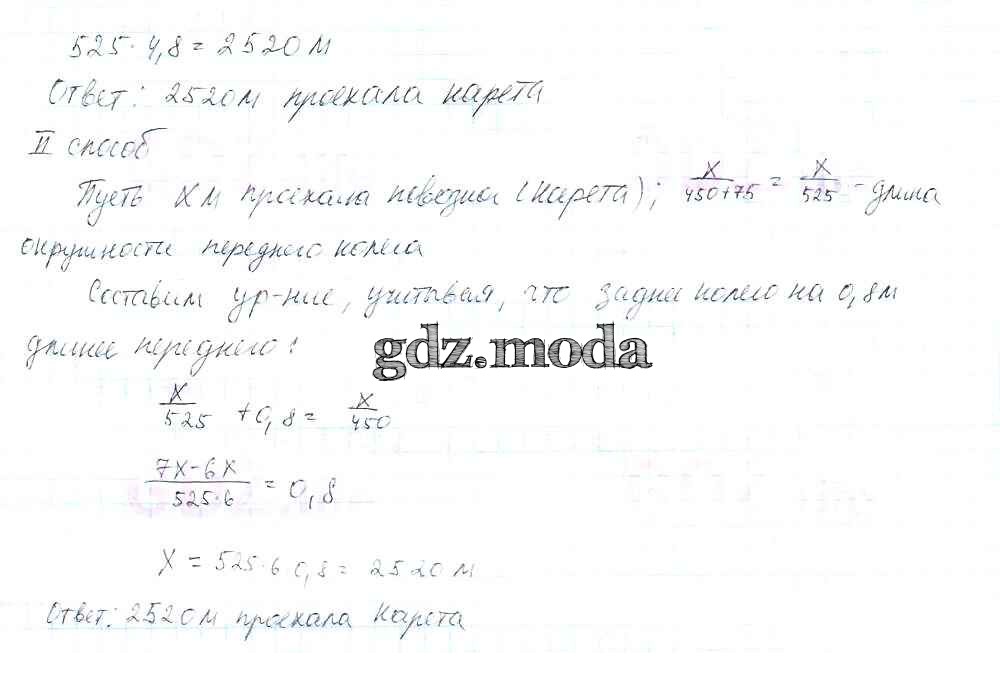 525 · 4,8 = 2520 м
Ответ: 2520 м проехала карета
II способ
Пусть x м проехала повозка (карета); x/(450+75) = x/525 - длина
окружности переднего колеса
Составим ур-ние, учитывая, что заднее колесо на 0,8 м
длинее переднего:
gdz.moda
x/525 + 0,8 = x/450
(7x-6x)/(525·6) = 0,8
x = 525·6·0,8 = 2520 м
Ответ: 2520 м проехала карета